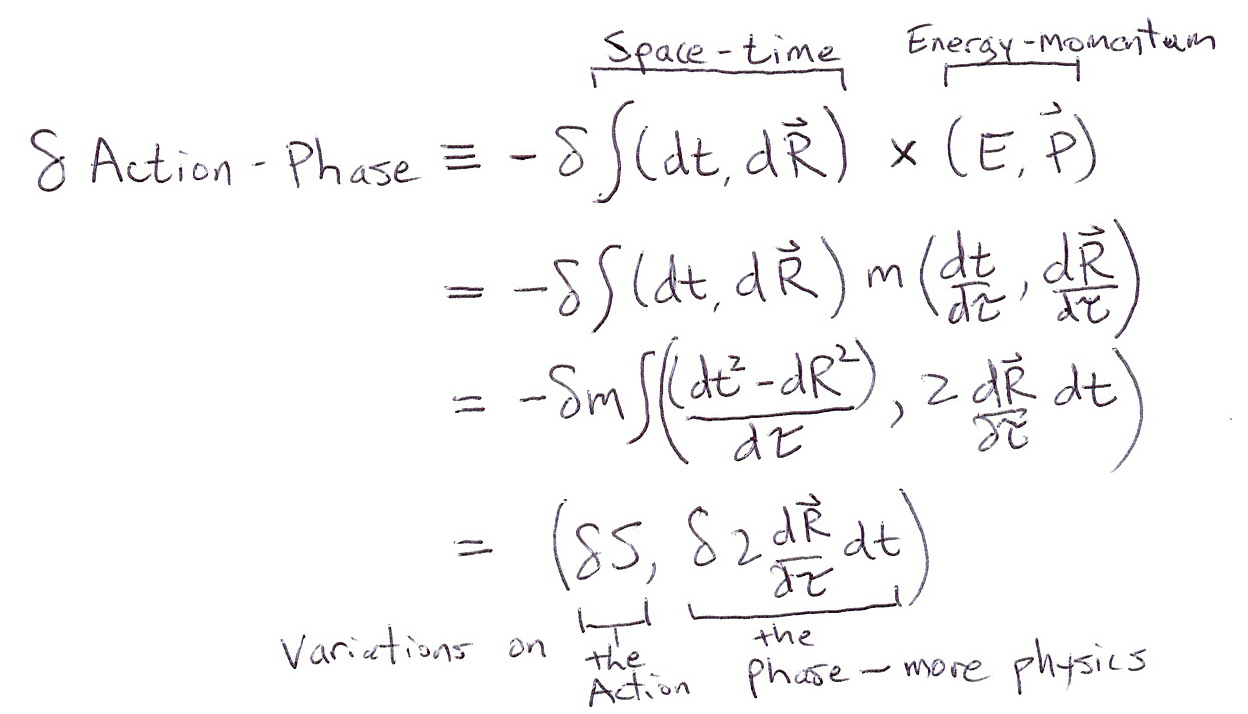 Space-time Energy-momentum
δ Action-Phase ≡ -δ∫(dt, dR⃗) × (E, P⃗)
= -δ∫(dt, dR⃗) m(dt/dτ, dR⃗/dτ)
= -δm∫((dt²-dR²)/dτ, 2 dR⃗/dτ dt)
= (δS, δ2 dR⃗/dτ dt)
Variations on the Action the phase - more physics